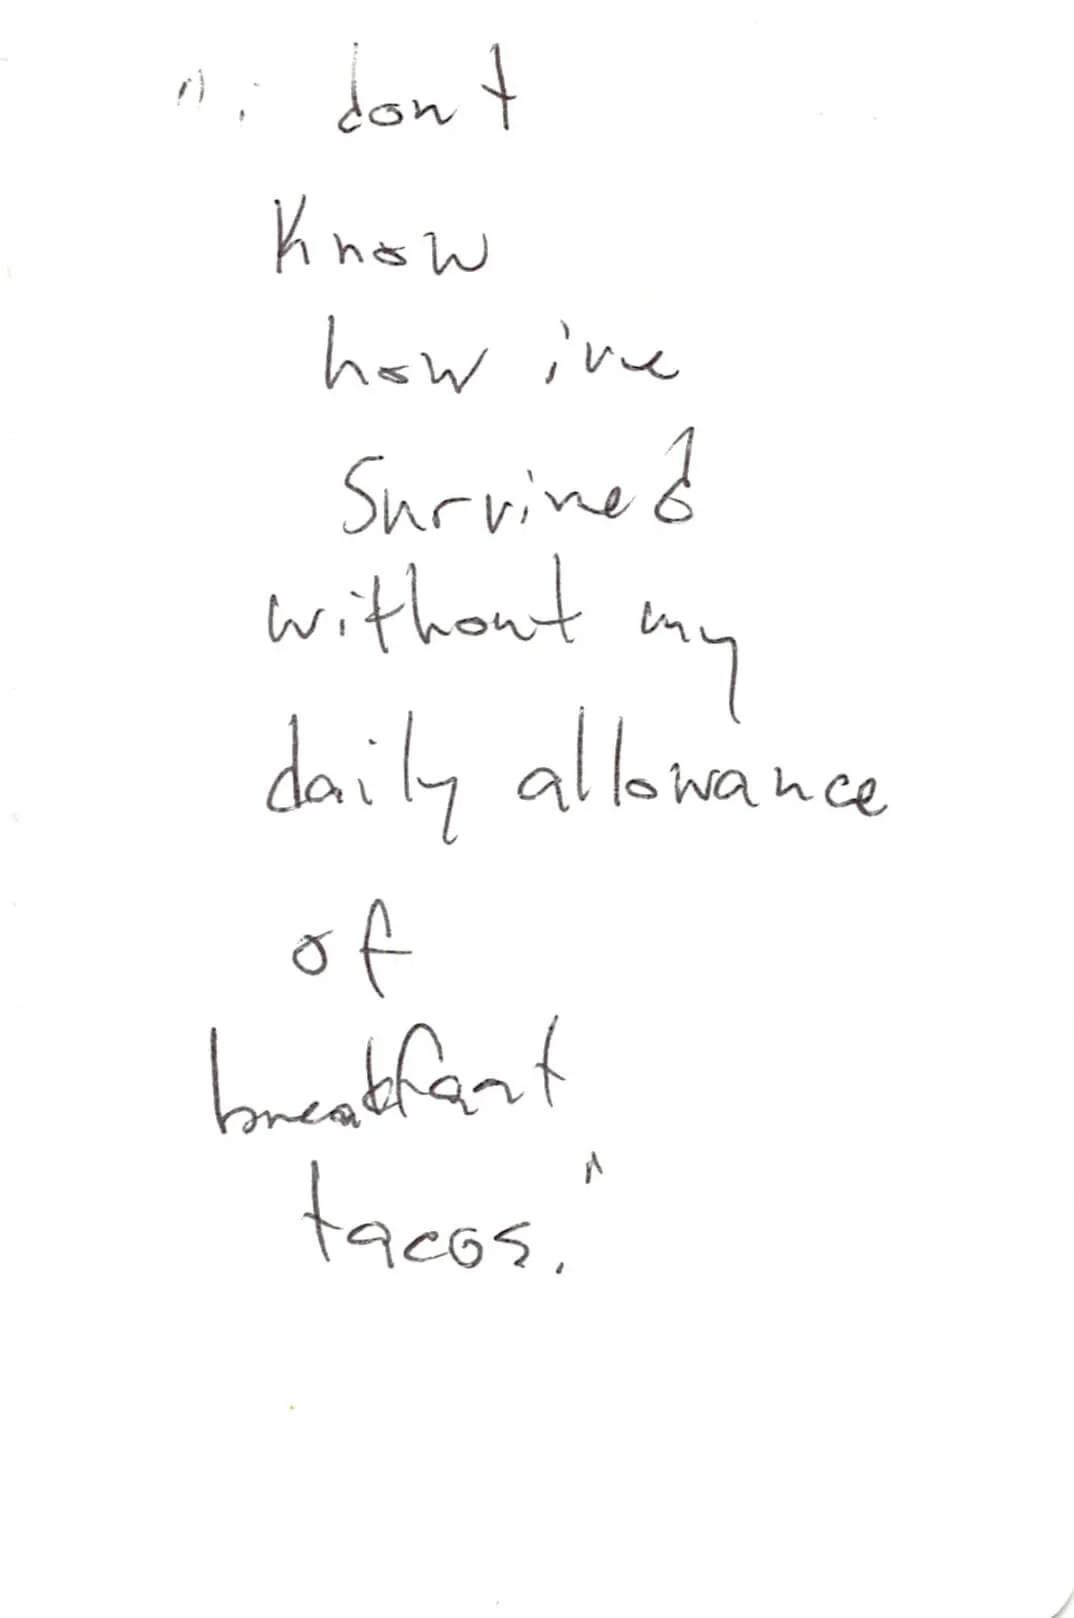 "i dont
Know
how ive
Survived
without my
daily allowance
of
breakfast
tacos."